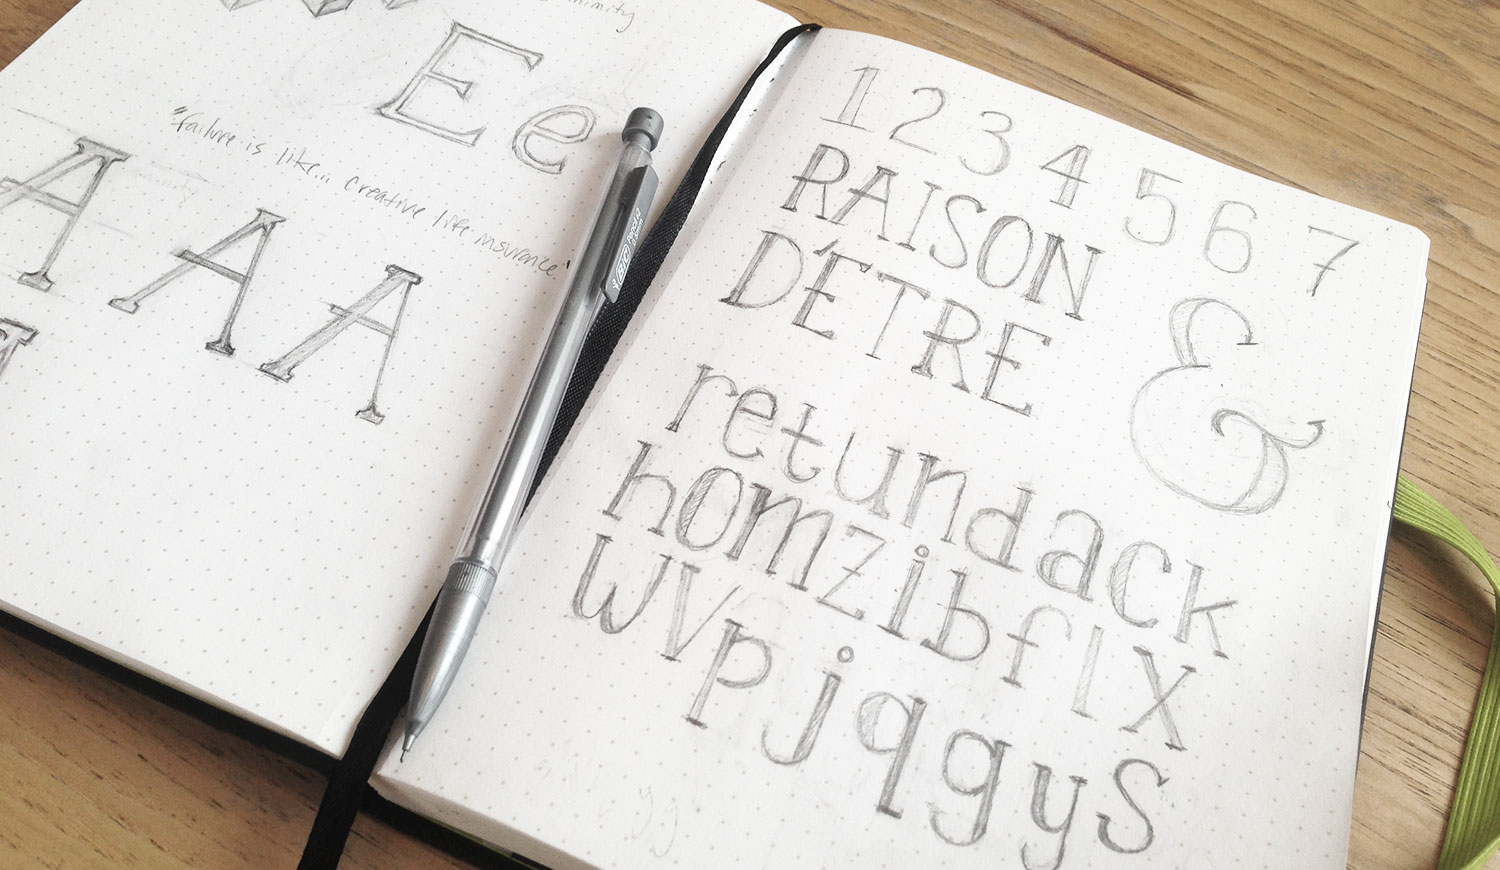 Ee
"failure is like... creative life insurance"
A A A
1 2 3 4 5 6 7
RAISON
D'ÉTRE
&
retundack
homzibflx
wvpjqgys
BIC